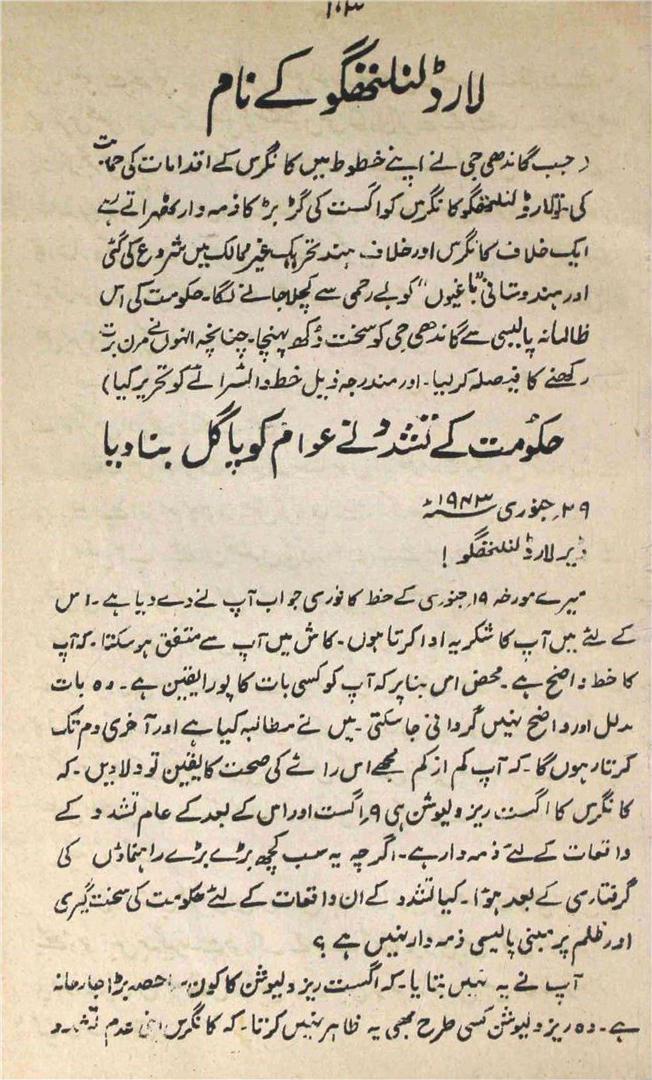 ۱۰۳
لارڈ لنلتھگو کے نام
( جب گاندھی جی نے اپنے خطوط میں کانگرس کے اقدامات کی حمایت
کی۔ تو لارڈ لنلتھگو کانگرس کو اگست کی گڑ بڑ کا ذمہ دار ٹھہراتے رہے
ایک خلاف کانگرس اور خلاف ہند تحریک غیر ممالک میں شروع کی گئی
اور ہندوستانی "باغیوں" کو بے رحمی سے کچلا جانے لگا۔ حکومت کی اس
ظالمانہ پالیسی سے گاندھی جی کو سخت دُکھ پہنچا۔ چنانچہ انہوں نے مرن برت
رکھنے کا فیصلہ کر لیا۔ اور مندرجہ ذیل خط وائسرائے کو تحریر کیا)
حکومت کے تشدد نے عوام کو پاگل بنا دیا
۲۹ جنوری ۱۹۴۳ء
ڈیر لارڈ لنلتھگو !
میرے مورخہ ۱۹ جنوری کے خط کا فوری جواب آپ نے دے دیا ہے۔ اس
کے لئے میں آپ کا شکریہ ادا کرتا ہوں۔ کاش میں آپ سے متفق ہو سکتا۔ کہ آپ
کا خط واضح ہے۔ محض اس بنا پر کہ آپ کو کسی بات کا پورا یقین ہے۔ وہ بات
مدلل اور واضح نہیں گردانی جا سکتی۔ میں نے مطالبہ کیا ہے اور آخری دم تک
کرتا رہوں گا۔ کہ آپ کم از کم مجھے اس رائے کی صحت کا یقین تو دلا دیں۔ کہ
کانگرس کا اگست ریزولیوشن ہی ۹ اگست اور اس کے بعد کے عام تشدد کے
واقعات کے لئے ذمہ دار ہے۔ اگرچہ یہ سب کچھ بڑے بڑے راہنماؤں کی
گرفتاری کے بعد ہؤا۔ کیا تشدد کے ان واقعات کے لئے حکومت کی سخت گیری
اور ظلم پر مبنی پالیسی ذمہ دار نہیں ہے ؟
آپ نے یہ نہیں بتایا۔ کہ اگست ریزولیوشن کا کون سا حصہ بڑا جارحانہ
ہے۔ وہ ریزولیوشن کسی طرح بھی یہ ظاہر نہیں کرتا۔ کہ کانگرس اپنی عدم تشدد